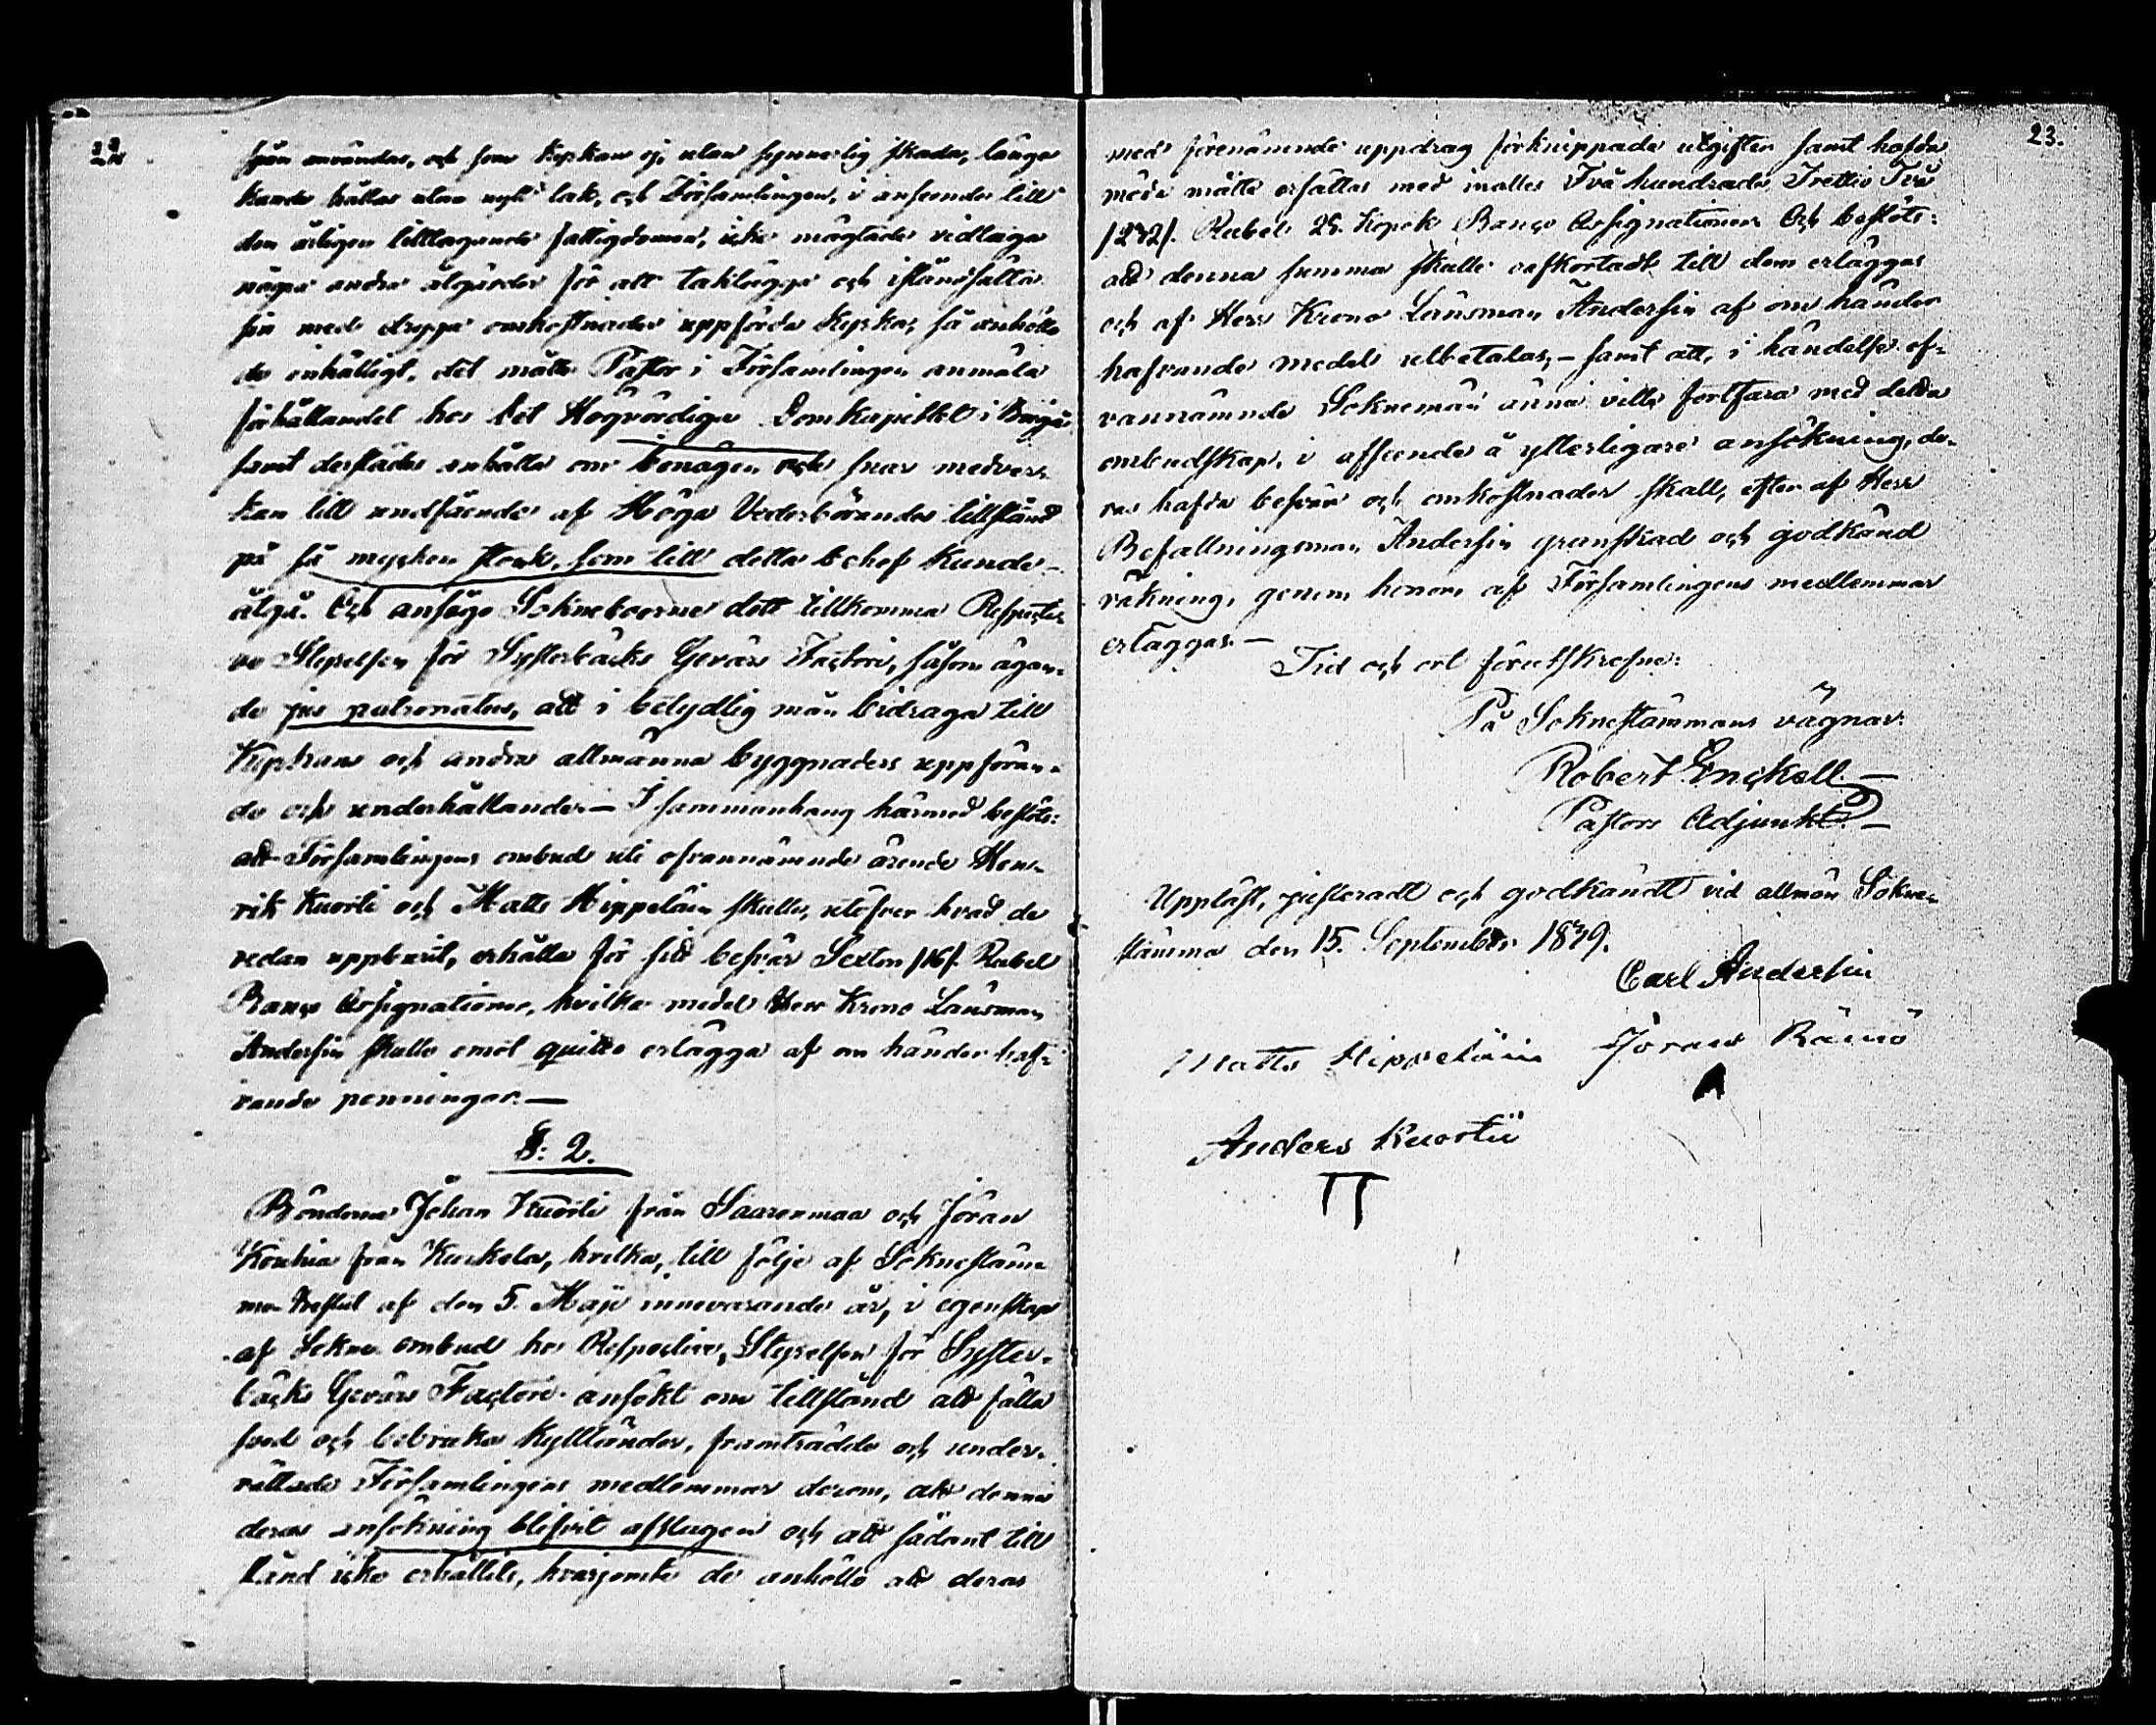 22
spån användas, och som Kyrkan ej, utan synnerlig skada, länge
kunde hållas utan nytt tak, och Församlingen, i anseende till
den årligen tilltagande fattigdomen, icke mägtade vidtaga
några andra åtgärder för att taklägga och iståndsätta
sin med dryga omkostnader uppförda Kyrka, så anhöllo
de enhälligt, det måtte Pastor i Församlingen anmäla
förhållandet hos Det Högvördiga Domkapitlet i Borgå
samt derstädes anhålla om benägen och snar medver-
kan till undfående af Höga Vederbörandes tillstånd
på så mycken stock, som till detta behof kunde
åtgå. Och ansågo Sokneboerne dett tillkomma Respecti-
ve Styrelsen för Systerbäcks Gevärs Factori, såsom ägan-
de jus patronatus, att i betydlig mån bidraga till
Kyrkans och andra allmänna byggnaders uppföran-
de och underhållande. — I sammanhang härmed beslöts:
att Församlingens ombud uti ofvannämnde ärende Hen-
rik Kuorti och Matts Hippeläin skulle, utöfver hvad de
redan uppburit, erhålla för sitt besvär Sexton /16/. Rubel
Banco Assignationer, hvilka medel Herr Krono Länsman
Andersin skulle emot quitto erlägga af om händer haf-
vande penningar. —
§: 2.
Bönderne Johan Kuorti från Saarenmaa och Jöran
Kouhia från Kuokela, hvilka, till följe af Sokneståm-
mo Beslut af den 5. Maji innevarande år, i egenskap
af Sokne ombud hos Respective Styrelsen för Syster-
bäcks Gevärs Factori ansökt om tillstånd att fälla
sved och bebruka Kyttländer, framträdde och under-
rättade Församlingens medlemmar derom, att denna
deras ansökning blifvit afslagen och att sådant till
stånd icke erhållits, hvarjemte de anhöllo att deras
23.
med förenämnde uppdrag förknippade utgifter samt hafda
möda måtte ersättas med inalles Två hundrade Trettio Två
/232/. Rubel 25. Kopek Banco Assignationer. Och beslöts:
att denna summa skulle oafkortadt till dem erläggas
och af Herr Krono Länsman Andersin af om händer
hafvande medel utbetalas, — samt att, i händelse of-
vannämnde Soknemän ännu ville fortfara med detta
ombudskap, i afseende å ytterligare ansökning, de-
ras hafda besvär och omkostnader skall, efter af Herr
Befallningsman Andersin granskad och godkänd
räkning, genom honom af Församlingens medlemmar
erläggas. —
Tid och ort förutskrefne:
På Soknestämmans vägnar:
Robert Enckell. —
Pastors Adjunkt. —
Uppläst, justeradt och godkändt vid allmän Sokne-
stämma den 15. September 1839.
Carl Andersin
Matts Hippeläin Jöran Rämö
Anders Kuortti